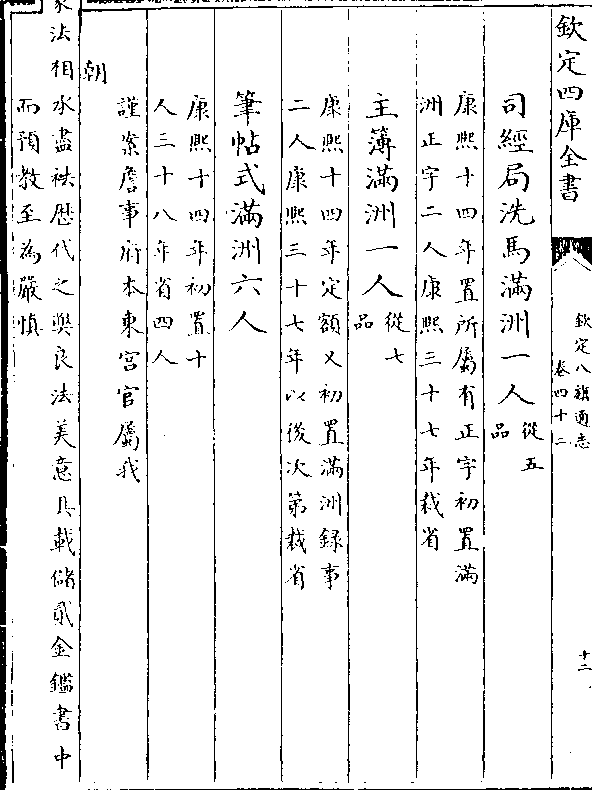 欽定四庫全書
欽定八旗通志
卷四十二
十二
司經局洗馬滿洲一人從五品
康熙十四年置所屬有正字初置滿
洲正字二人康熙三十七年裁省
主簿滿洲一人從七品
康熙十四年定額又初置滿洲録事
二人康熙三十七年以後次第裁省
筆帖式滿洲六人
康熙十四年初置十
人三十八年省四人
謹案詹事府本東宮官屬我
朝
家法相承盡袪歴代之弊良法美意具載儲貳金鑑書中
而預教至為嚴慎